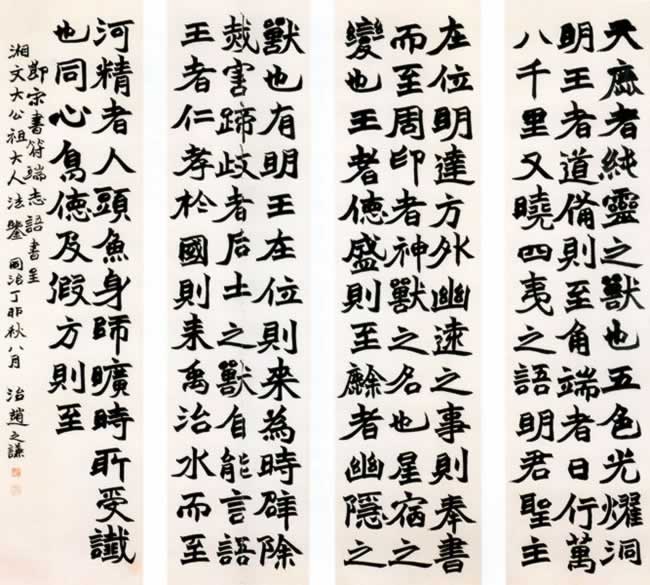 天鹿者純靈之獸也五色光耀洞
明王者道備則至角端者日行萬
八千里又曉四夷之語明君聖主
在位明達方外幽遠之事則奉書
而至周印者神獸之名也星宿之
變也王者德盛則至者幽隱之
獸也有明王在位則来為時辟除
烖害蹄歧者后土之獸自能言語
王者仁孝於國則来禹治水而至
河精者人頭魚身師曠時所受讖
也同心鳥德及遐方則至
節宋書符瑞志語書呈
湘文大公祖大人法鑒 同治丁卯秋八月 治趙之謙